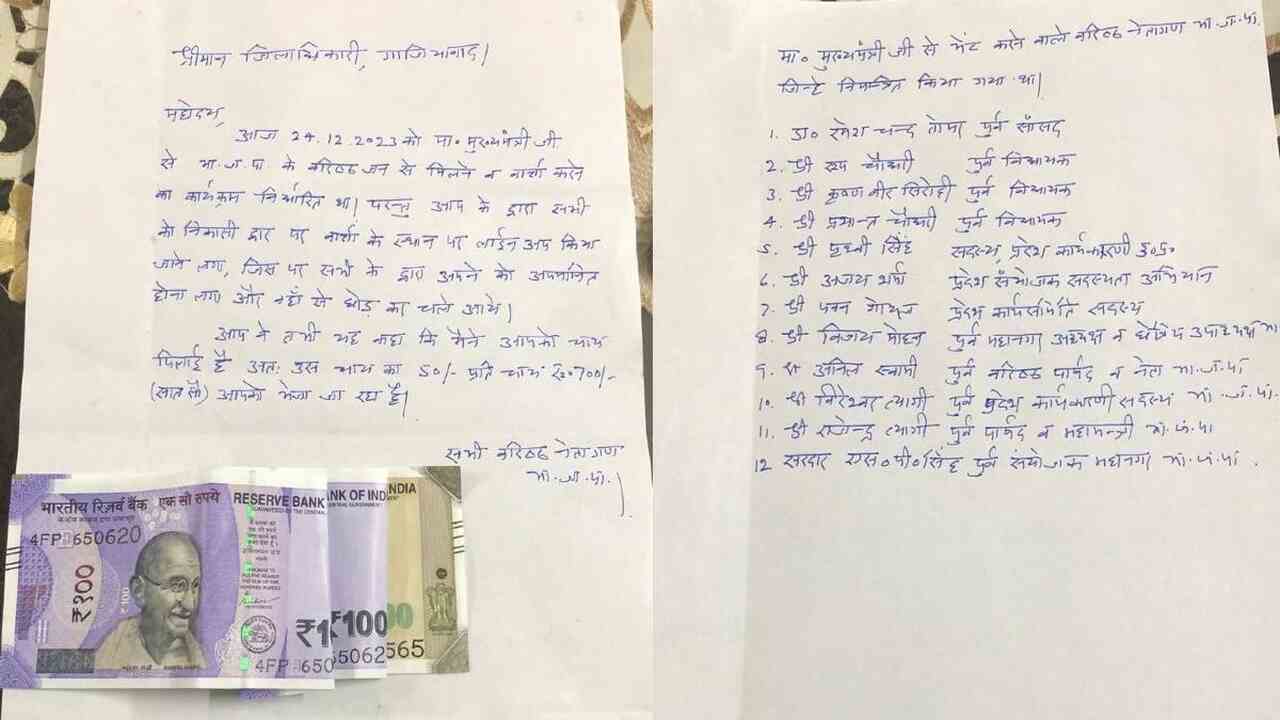 श्रीमान जिलाधिकारी, गाजियाबाद।
महोदय,
आज 24.12.2023 को मा० मुख्यमंत्री जी
से भा.ज.पा. के वरिष्ठ जन से मिलने व वार्ता करने
का कार्यक्रम निर्धारित था। परन्तु आप के द्वारा सभी
को निकासी द्वार पर वार्ता के स्थान पर लाईन अप किया
जाने लगा, जिस पर सभी के द्वारा अपने को अपमानित
होना लगा और वहाँ से छोड़ कर चले आये।
आप ने तभी यह कहा कि मैंने आपको चाय
पिलाई है अतः उस चाय का 50/- प्रति चाय रू०700/-
(सात सौ) आपको भेजा जा रहा है।
सभी वरिष्ठ नेतागण
भा.ज.पा.।
भारतीय रिज़र्व बैंक एक सौ रुपये RESERVE BANK ANK OF IND INDIA
4FP 650620
₹१००
₹1 ₹100 00
4FP 650 65062 565
मा० मुख्यमंत्री जी से भेंट करने वाले वरिष्ठ नेतागण भा.ज.पा.
जिन्हे निमन्त्रित किया गया था।
1. डा० रमेश चन्द तोमर पुर्व सांसद
2. श्री रूप चौधरी पुर्व विधायक
3. श्री कृष्ण वीर सिरोही पुर्व विधायक
4. श्री प्रशान्त चौधरी पुर्व विधायक
5. श्री पृथ्वी सिंह सदस्य, प्रदेश कार्यकारणी उ०प्र०
6. श्री अजय शर्मा प्रदेश संयोजक सदस्यता अभियान
7. श्री पवन गोयल प्रदेश कार्यसमिति सदस्य
8. श्री विजय मोहन पुर्व महानगर अध्यक्ष व क्षेत्रिय उपाध्यक्ष भा.
9. श्री अनिल स्वामी पुर्व वरिष्ठ पार्षद व नेता भा.ज.पा
10. श्री विरेश्वर त्यागी पुर्व प्रदेश कार्यकारणी सदस्य भा.ज.पा.
11. श्री राजेन्द्र त्यागी पुर्व पार्षद व महामन्त्री भा.ज.पा
12 सरदार एस०पी०सिंह पुर्व संयोजक महानगर भा.ज.पा.